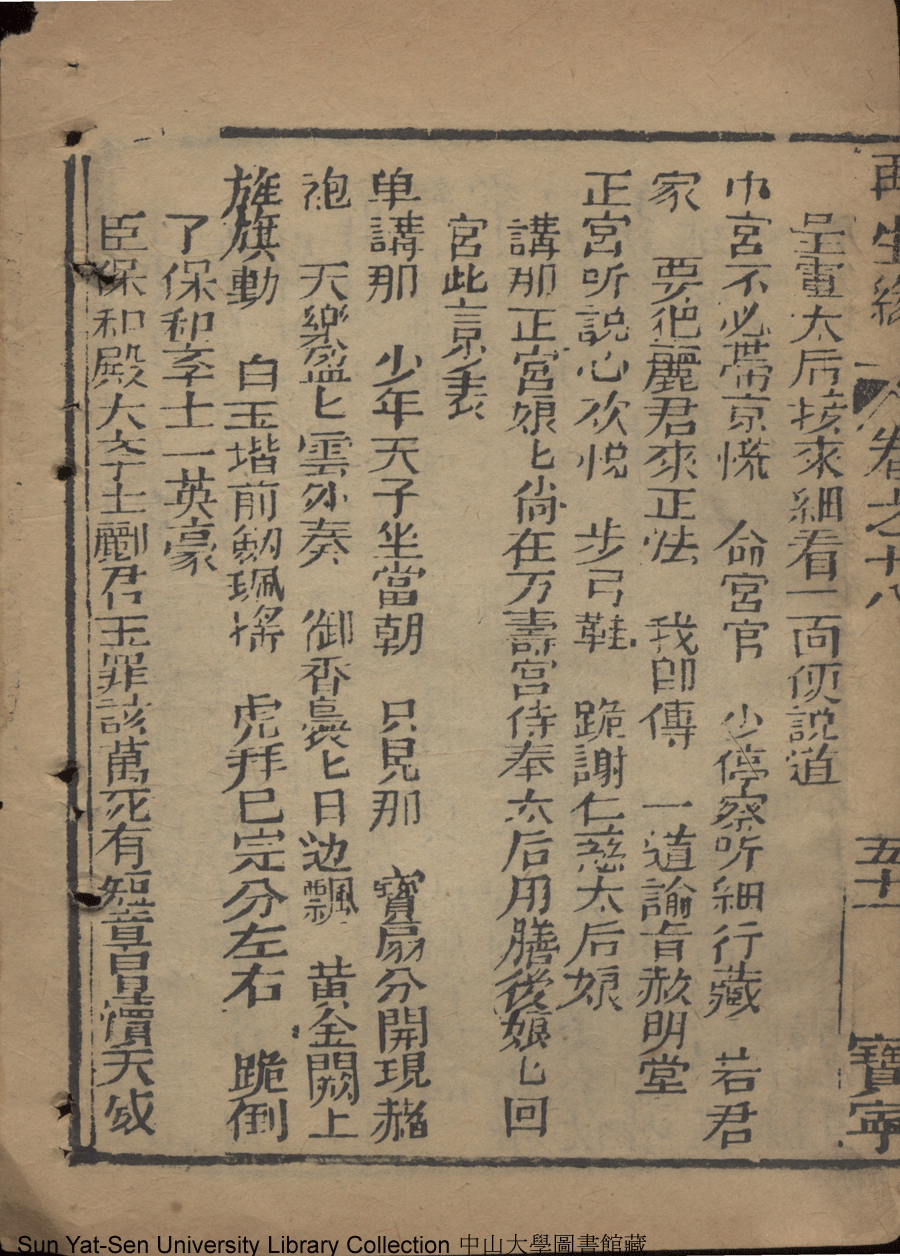 再生緣 卷之十八 五十一 寶寧
呈電太后接來細看一面便説道
巾宮不必帶京慌 命宮官 少停察听細行藏 若君
家 要把麗君來正法 我卽傳 一道諭旨赦明堂
正宮听説心欢悅 步弓鞋 跪謝仁慈太后娘
講那正宮娘匕尚在万壽宮侍奉太后用膳後娘匕回
宮此言景表
单講那 少年天子坐當朝 只見那 寶扇分開現赭
袍 天樂盈匕雲外奏 御香裊匕日边飄 黄金闕上
旌旗動 白玉堦前劒珮揺 虎拜已完分左右 跪倒
了保和孛士一英豪
臣保和殿大孛士酈君玉罪該萬死有短章冒瀆天威
Sun Yat-Sen University Library Collection 中山大學圖書館藏